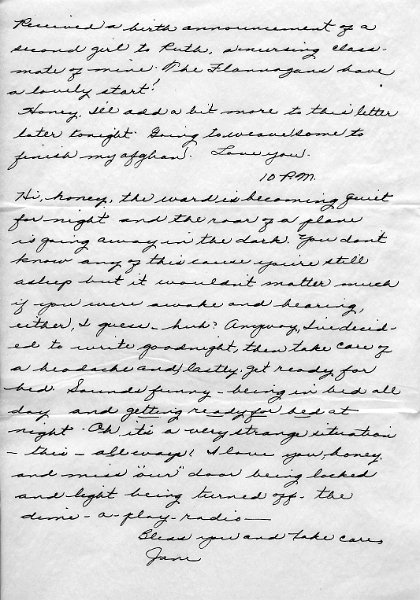 Received a birth announcement of a
second girl to Ruth, a nursing class-
mate of mine. The Flannagans have
a lovely start!
Honey, I'll add a bit more to this letter
later tonight. Going to weave some to
finish my afghan. Love you.
10 P.M.
Hi, honey, the ward is becoming quiet
for night and the roar of a plane
is going away in the dark. You don't
know any of this cause you're still
asleep but it wouldn't matter much
if you were awake and hearing,
either, I guess - huh? Anyway, I've decid-
ed to write goodnight, then take care of
a headache and, lastly, get ready for
bed. Sounds funny - being in bed all
day and getting ready for bed at
night. Oh, it's a very strange situation
- this - all ways! I love you, honey
and miss "our" door being locked
and light being turned off - the
dime - a - play - radio -
Bless you and take care,
Jane